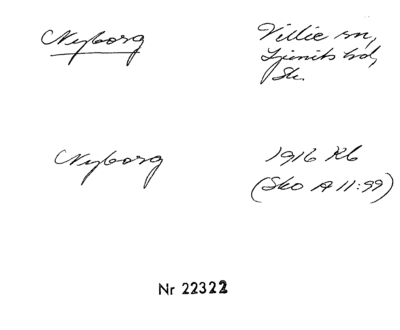 Nyborg
Villie sn,
Ljunits hd,
Sk.
Nyborg
1916 Rb
(Sko A 11:99)
Nr 22322